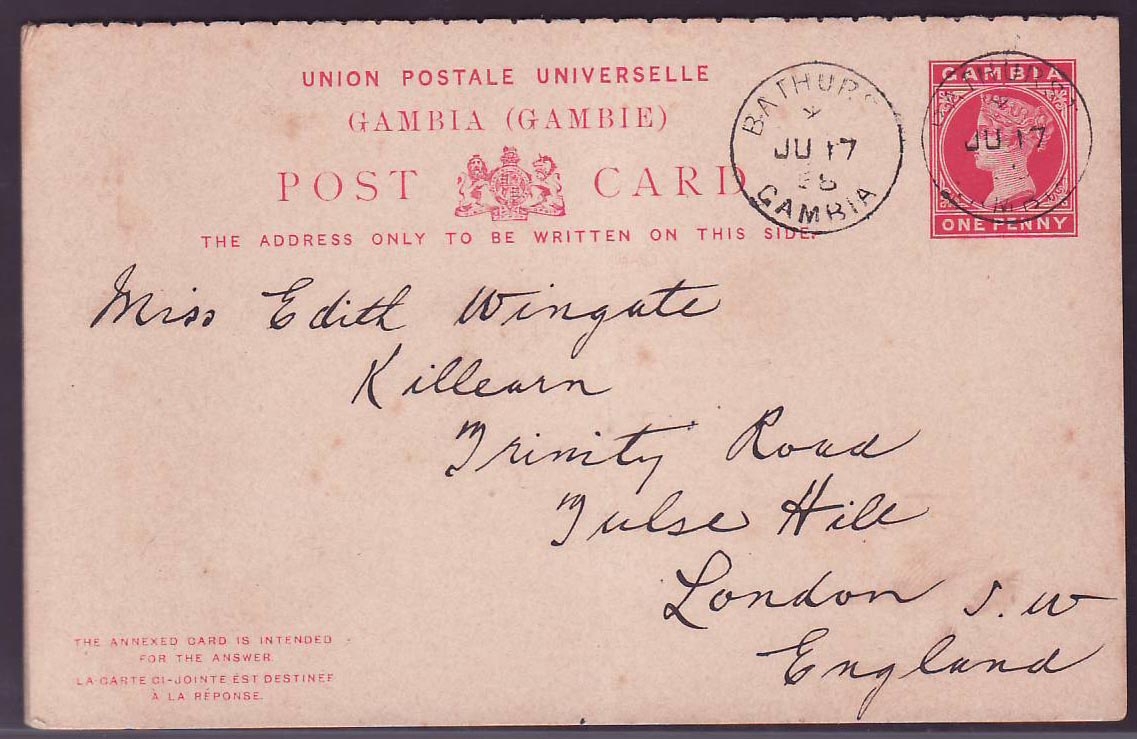 UNION POSTALE UNIVERSELLE
GAMBIA (GAMBIE)
POST CARD
THE ADDRESS ONLY TO BE WRITTEN ON THIS SIDE.
BATHURST
JU 17
GAMBIA
GAMBIA
BATHURST
JU 17
ONE PENNY
Miss Edith Wingate
Killearn
Trinity Road
Tulse Hill
London S. W
England
THE ANNEXED CARD IS INTENDED
FOR THE ANSWER.
LA CARTE CI-JOINTE EST DESTINÉE
À LA RÉPONSE.